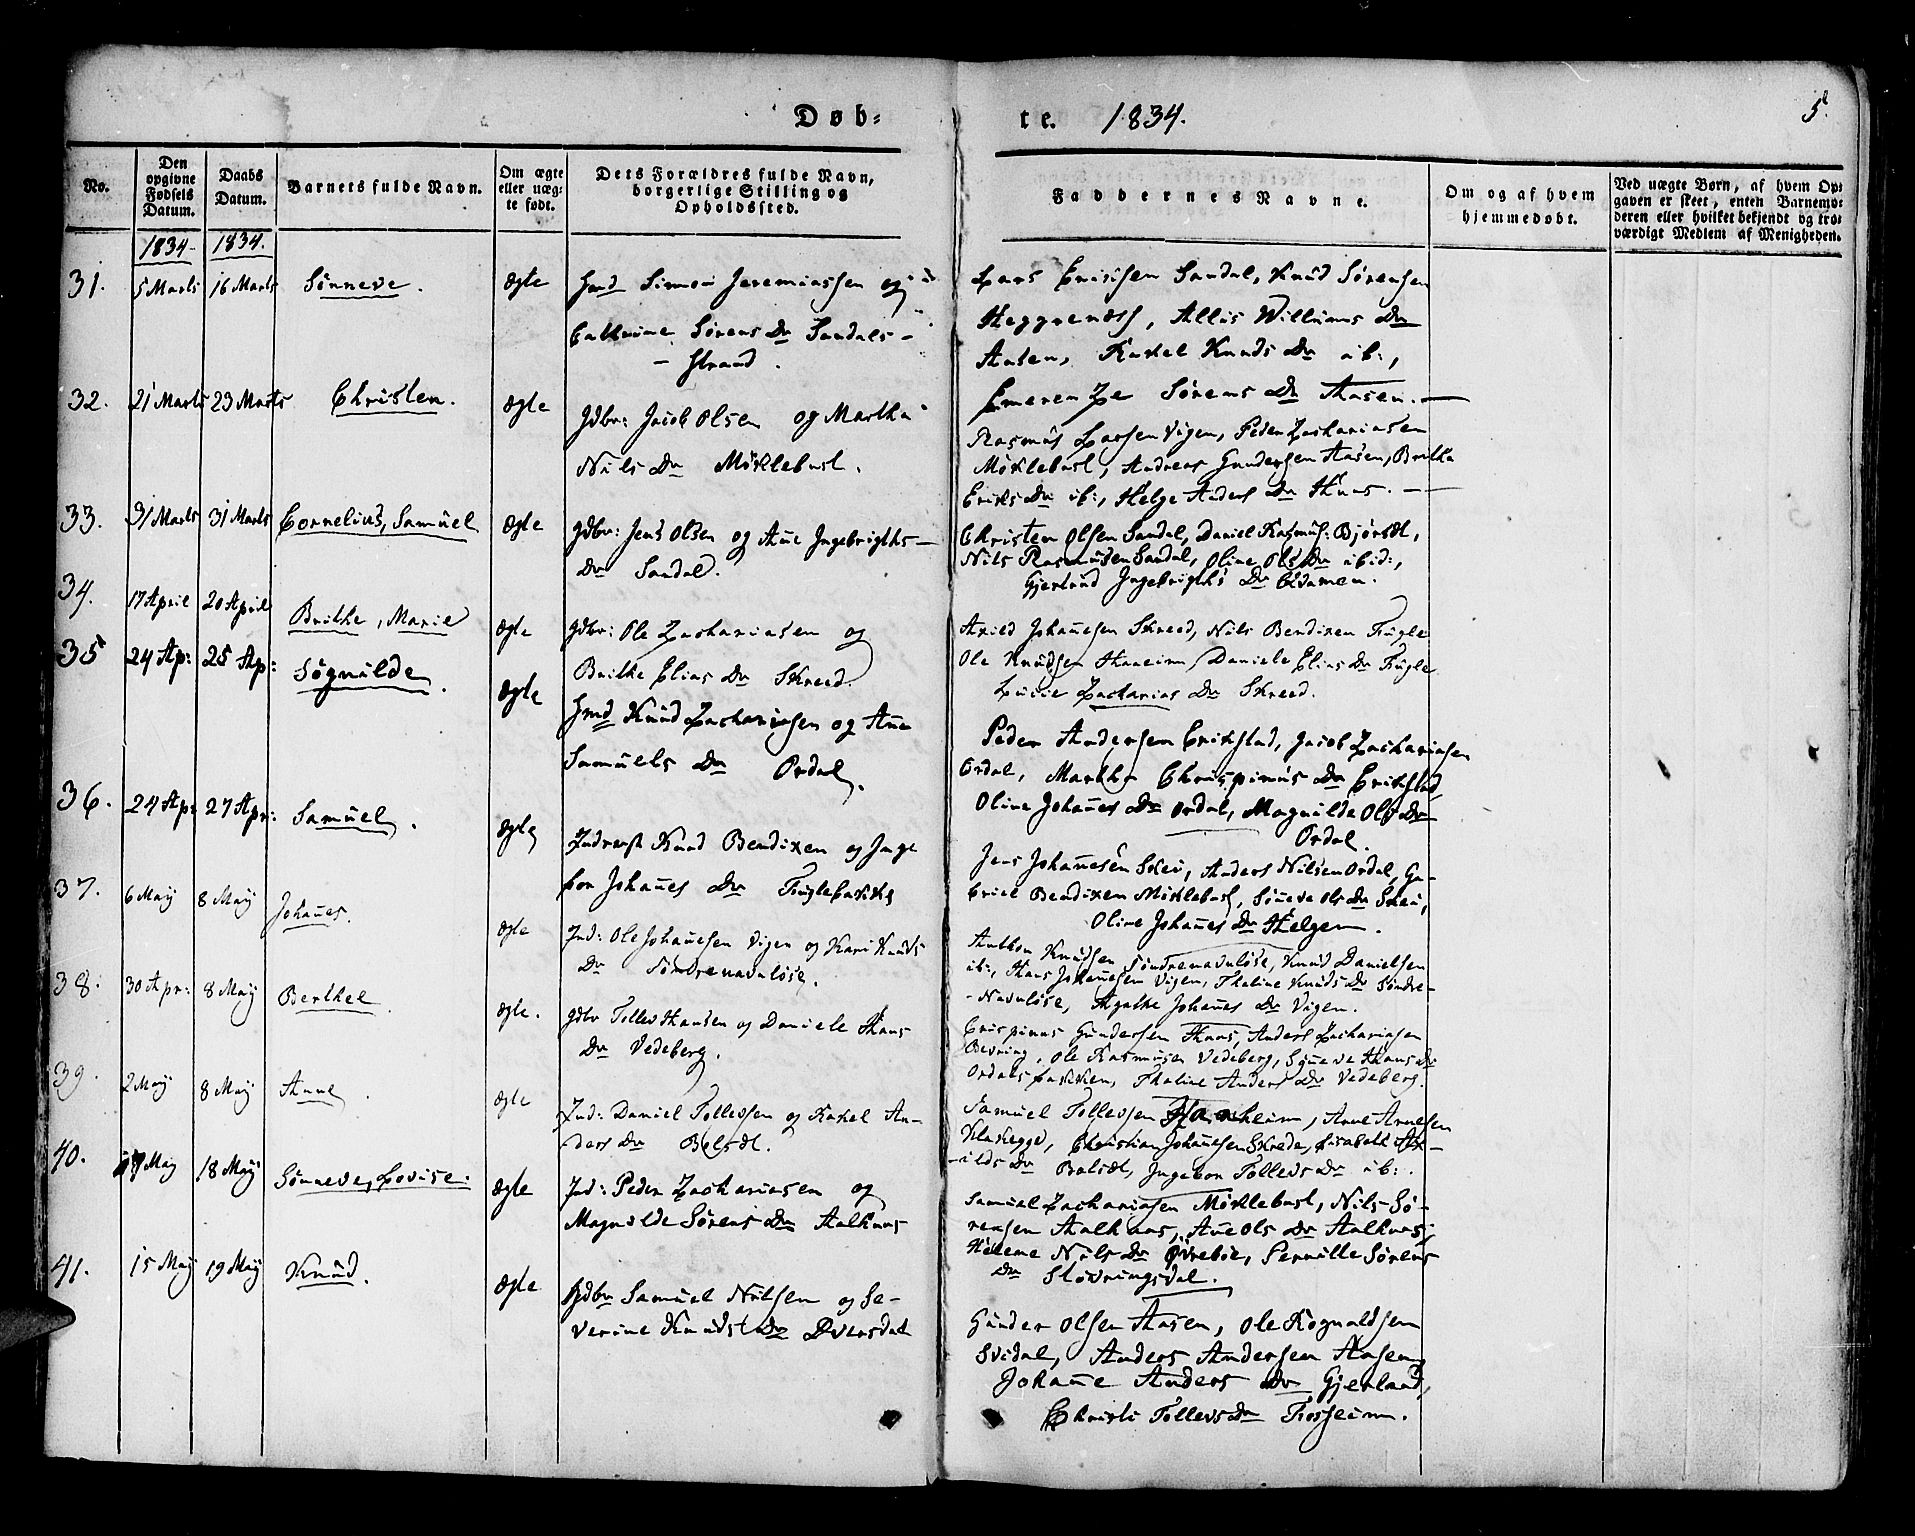 Døb-
te. 1834.
5.
No.
Den opgivne Fødsels Datum.
Daabs Datum.
Barnets fulde Navn.
Om ægte eller uæg-te født.
Dets Forældres fulde Navn, borgerlige Stilling og Opholdssted.
Faddernes Navne.
Om og af hvem hjemmedøbt.
Ved uægte Børn, af hvem Op-
gaven er skeet, enten Barnemo-
deren eller hvilket bekjendt og tro-
værdigt Medlem af Menigheden.
1834. 1834.
31. 5 Marts 16 Marts Sønneve. Ægte Hmd Simon Jeremiassen og
Cathrine Sørens Dr Sandals-
- strand.
Lars Erichsen Sandal, Knud Sørensen
Heggrenæss, Allis Willums Dr
Aasen, Rakel Knuds Dr ib:,
Sørens Dr Aasen.
32. 21 Marts 23 Marts Christen. Ægte Gdbr: Jacob Olsen og Martha
Nils Dr Møklebust.
Rasmus Larsen Vigen, Peder Zachariasen
Møklebust, Andreas Gundersen Aasen, Britha
Eriks Dr ib:, Helge Anders Dr Huus.
33. 31 Marts 31 Marts Cornelius, Samuel Ægte Gdbr: Jens Olsen og Ane Ingebrigths-
Dr Sandal.
Christen Olsen Sandal, Daniel Rasmus: Bjørsæt,
Nils Rasmusen Sandal, Oline Ols Dr ibid:,
Gjertrud Ingebrigths Dr
34. 17 April 20 April Brithe, Marie Ægte Gdbr: Ole Zachariasen og
Brithe Elias Dr Skreed.
Axild Johannesen Skreed, Nils Bendixen Fugle
Ole Knudsen Daniele Elias Dr Fugle
Lucie Zacharias Dr Skreed.
35 24 Ap: 25 Ap: Søgnilde. Ægte Hmd Knud Zachariasen og Ane
Samuels Dr Ordal.
Peder Andersen Erikstad, Jacob Zachariasen
Ordal, Marthe Chrispinus Dr Erikstad,
Oline Johannes Dr Ordal, Magnilde Ols Dr
Ordal.
36. 24 Apr: 27 Apr: Samuel. Ægte Inderst Knud Bendixen og Inge
bor Johannes Dr Fuglebakke
Jens Johannesen Skei, Anders Nilsen Ordal, Ga-
briel Bendixen Miklebust, Sønneve Ols Dr Skei,
Oline Johannes Dr Helgen.
37. 6 May 8 May Johannes. Ægte Ind: Ole Johannesen Vigen og Kari Knuds
Dr Søndrenavuløse.
Anthon Knudsen Søndrenavuløse, Knud Danielsen
ib:, Hans Johannesen Vigen, Thaline Knuds Dr Søndre-
-Navuløse, Agathe Johannes Dr Vigen.
38. 30 Apr: 8 May Berthel Ægte. Gdbr Tollev Hansen og Daniele Hans
Dr Vedeberg.
Crispinus Gundersen Huus, Anders Zachariasen
Bevring, Ole Rasmusen Vedeberg, Sønneve Hans Dr
Ordalsbakken, Thaline Anders Dr Vedeberg.
39. 2 May 8 May Anne. Ægte Ind: Daniel Tollevsen og Rakel An-
ders Dr Bolsæt.
Samuel Tollevsen Arne Arnesen
Klakegge, Christian Johannesen Skrede, Lisabeth Ax-
-ilds Dr Bolsæt, Ingebor Tollevs Dr ib:.
40. 17 May 18 May Sønneve, Lovise. Ægte Ind: Peder Zachariasen og
Magnilde Sørens Dr Aalhuus
Samuel Zachariasen Møklebust, Nils Sø-
rensen Aalhuus, Ane Ols Dr Aalhuus,
Helene Nils Dr Øvrebøe, Pernille Sørens
Dr Støvringsdal.
41. 15 May 19 May Knud. Ægte Gdbr Samuel Nilsen og Se-
verine Knuds Dr Dvergsdal
Gunder Olsen Aasen, Ole Rognaldsen
Svidal, Anders Andersen Aasen,
Johanne Anders Dr Gjerland,
Christi Tollevs Dr